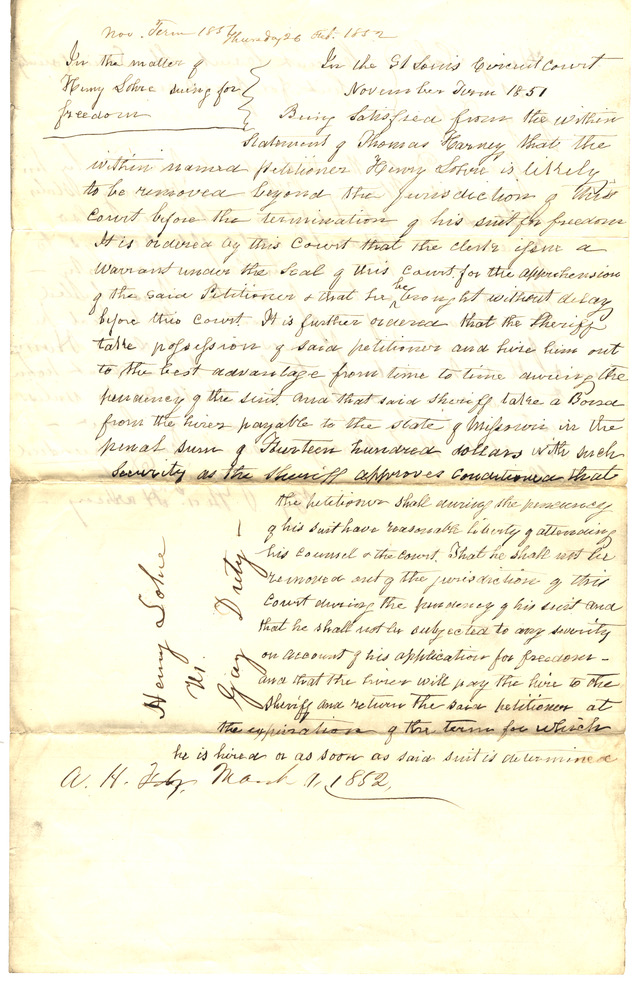 Nov. Term 1851 Thursday 26 Feb. 1852
In the matter of
Henry Lohre suing for
freedom
In the St Louis Circuit Court
November Term 1851
Being satisfied from the within
Statement of Thomas Harney that the
within named petitioner Henry Lohre is likely
to be removed beyond the jurisdiction of this
Court before the termination of his suit for freedom
It is ordered by this Court that the clerk issue a
Warrant under the seal of this Court for the apprehension
of the said Petitioner & that he be brought without delay
before this Court. It is further ordered that the Sheriff
take possession of said petitioner and hire him out
to the best advantage from time to time during the
pendency of the suit and that said sheriff take a Bond
from the hirer payable to the state of Missouri in the
penal sum of hundred dollars with such
Security as the Sheriff approves conditioned that
the petitioner shall during the pendency
of his suit have reasonable liberty of attending
his counsel & the court. That he shall not be
removed out of the jurisdiction of this
Court during the pendency of his suit and
that he shall not be subjected to any severity
on account of his application for freedom –
and that the hirer will pay the hire to the
Sheriff and return the said petitioner at
the expiration of the term for which
he is hired or as soon as said suit is determined
A. H. March 1, 1852
Henry Lohre
vs.
Guy Duty –